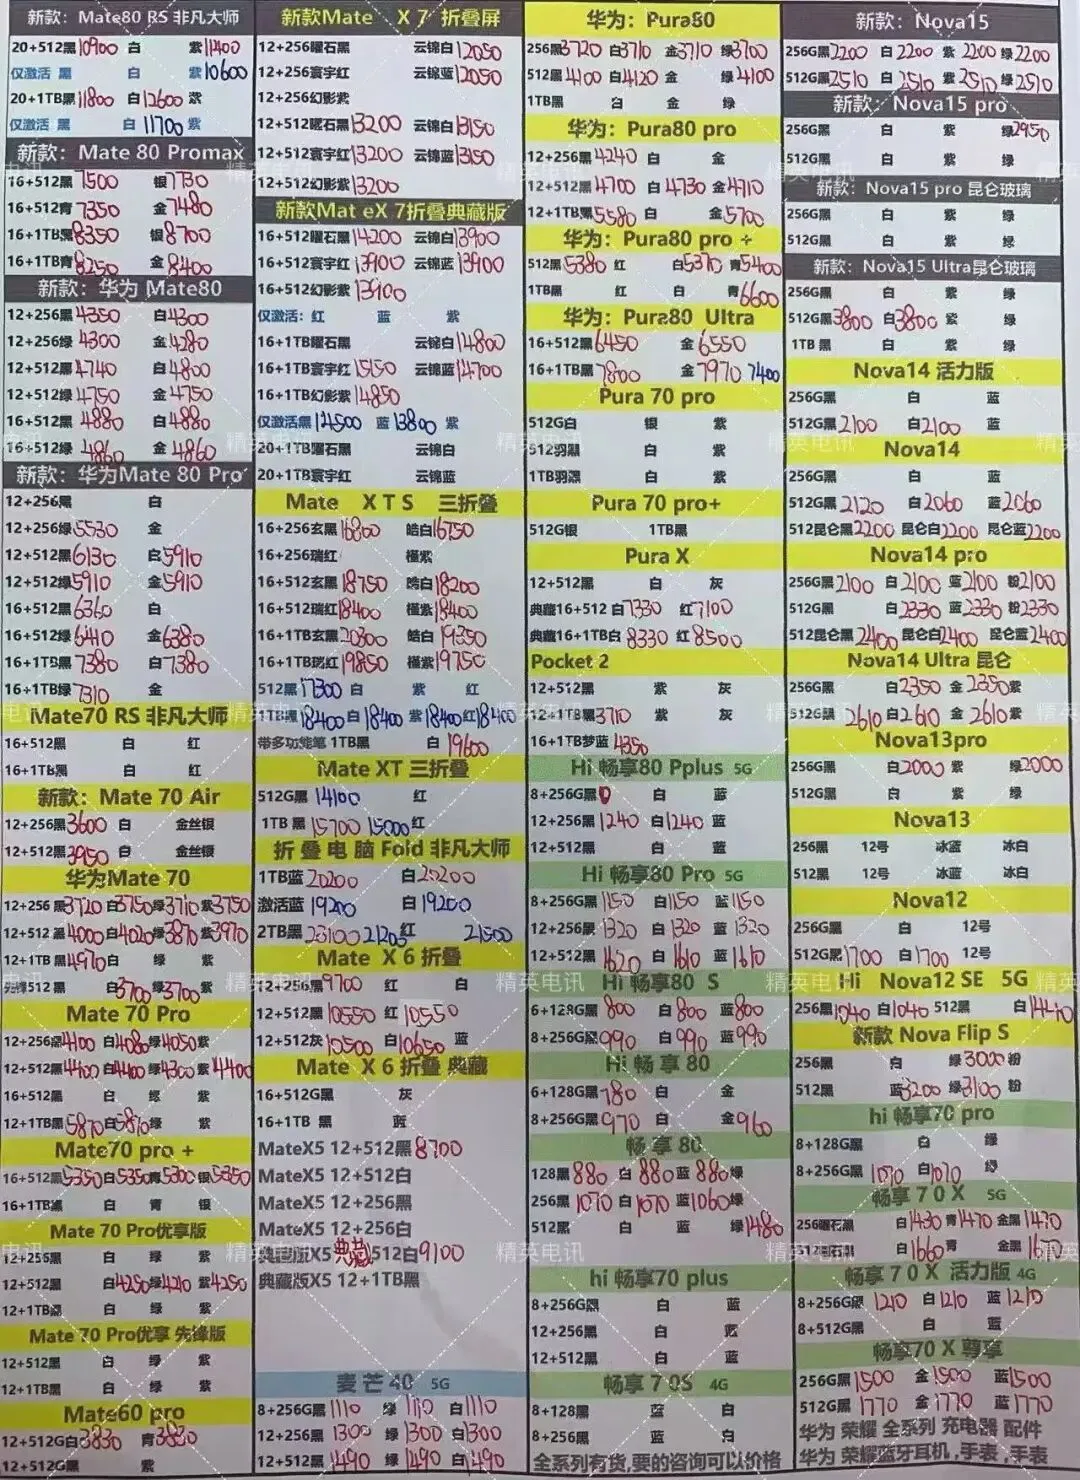 新款：Mate80 RS 非凡大师
20+512黑10900 白 紫11400
仅激活 黑 白 紫10600
20+1TB黑11800 白12600 紫
仅激活 黑 白11700 紫
新款：Mate 80 Promax
16+512黑7500 银7730
16+512青7350 金7480
16+1TB黑8350 银8700
16+1TB青8250 金8400
新款：华为 Mate80
12+256黑4350 白4300
12+256绿4300 金4280
12+512黑4740 白4800
12+512绿4750 金4750
16+512黑4880 白4880
16+512绿4860 金4860
新款：华为Mate 80 Pro
12+256黑 白
12+256绿5530 金
12+512黑6130 白5910
12+512绿5910 金5910
16+512黑6360 白
16+512绿6410 金6380
16+1TB黑7380 白7380
16+1TB绿7310 金
Mate70 RS 非凡大师
16+512黑 白 红
16+1TB黑 白 红
新款：Mate 70 Air
12+256黑3600 白 金丝银
12+512黑3950 白 金丝银
华为Mate 70
12+256 黑3720 白3750 绿3710 紫3750
12+512 黑4000 白4020 绿3870 紫3970
12+1TB 黑4970 白 绿 紫
先锋512 黑 白3700 绿3700 紫
Mate 70 Pro
12+256黑4100 白4080 绿4050 紫
12+512黑4400 白4400 绿4300 紫4400
16+512黑 白 绿 紫
12+1TB黑5870 白5870 绿 紫
Mate70 pro +
16+512黑5350 白5350 青5300 银5350
16+1TB黑 白 青 银
Mate 70 Pro优享版
12+256黑 白 绿 紫
12+512黑 白4250 绿4210 紫4250
12+1TB黑 白 绿 紫
Mate 70 Pro优享 先锋版
12+512黑 白 绿 紫
12+1TB黑 白 绿 紫
Mate60 pro
12+512G白3830 青3830
12+512G黑 紫
新款Mate X 7 折叠屏
12+256曜石黑 云锦白12050
12+256寰宇红 云锦蓝12050
12+256幻影紫
12+512曜石黑13200 云锦白13150
12+512寰宇红13200 云锦蓝13150
12+512幻影紫13200
新款Mat eX 7折叠典藏版
16+512曜石黑14200 云锦白13900
16+512寰宇红13900 云锦蓝13900
16+512幻影紫13900
仅激活：红 蓝 紫
16+1TB曜石黑 云锦白14800
16+1TB寰宇红15150 云锦蓝14700
16+1TB幻影紫14850
仅激活黑14500 蓝13800 紫
20+1TB曜石黑 云锦白
20+1TB寰宇红 云锦蓝
Mate X T S 三折叠
16+256玄黑16800 皓白16750
16+256瑞红 槿紫
16+512玄黑18750 皓白18200
16+512瑞红18400 槿紫18400
16+1TB玄黑20300 皓白19350
16+1TB瑞红19850 槿紫19750
512黑17300 白 紫 红
1TB黑18400 白18400 紫18400 红18400
带多功能笔 1TB黑 白19600
Mate XT 三折叠
512G黑14100 红
1TB 黑15700 15000 红
折 叠 电 脑 Fold 非凡大师
1TB蓝20200 白20200
激活蓝19200 白19200
2TB黑23100 21205 红 21500
Mate X 6 折叠
12+256黑9700 红 白
12+512黑10550 红10550
12+512灰10500 白10650 蓝
Mate X 6 折叠 典藏
16+512G黑 灰
16+1TB 黑 蓝
MateX5 12+512黑8700
MateX5 12+512白
MateX5 12+256黑
MateX5 12+256白
典藏版X5 典藏512白9100
典藏版X5 12+1TB黑
麦 芒 40 5G
8+256G黑1110 绿1110 白1110
12+256黑1300 绿1300 白1300
12+512黑1490 绿1490 白1490
华为：Pura80
256黑3720 白3710 金3710 绿3700
512黑4100 白4120 金 绿4100
1TB黑 白 金 绿
华为：Pura80 pro
12+256黑4240 白 金
12+512黑4700 白4730 金4710
12+1TB黑5580 白 金5700
华为：Pura80 pro +
512黑5380 红 白5370 青5400
1TB黑 红 白 青6600
华为：Pura80 Ultra
16+512黑6450 金6550
16+1TB黑7800 金7970 7400
Pura 70 pro
512G白 银 紫
512羽黑 白 紫
1TB羽黑 白 紫
Pura 70 pro+
512G银 1TB黑
Pura X
12+512黑 白 灰
典藏16+512 白7330 红7100
典藏16+1TB白8330 红8500
Pocket 2
12+512黑 紫 灰
12+1TB黑3710 紫 灰
16+1TB梦蓝4350
Hi 畅享80 Pplus 5G
8+256G黑 白 蓝
12+256黑1240 白1240 蓝
12+512黑 白 蓝
Hi 畅享80 Pro 5G
8+256G黑1150 白1150 蓝1150
12+256黑1320 白1320 蓝1320
12+512黑1620 白1610 蓝1610
Hi 畅享80 S
6+128G黑800 白800 蓝800
8+256G黑990 白990 蓝990
Hi 畅 享 80
6+128G黑780 白 金
8+256G黑970 白 金960
畅 享 80
128黑880 白880 蓝880 绿
256黑1070 白1070 蓝1060 绿
512黑 白 蓝 绿1480
hi 畅享70 plus
8+256G黑 白 蓝
12+256黑 白 蓝
12+512黑 白 蓝
畅享 7 0S 4G
8+128黑 蓝 白
8+256黑 蓝 白
全系列有货,要的咨询可以价格
新款：Nova15
256G黑2200 白2200 紫2200 绿2200
512G黑2510 白2510 紫2510 绿2510
新款：Nova15 pro
256G黑 白 紫 绿2950
512G黑 白 紫 绿
新款：Nova15 pro 昆仑玻璃
256G黑 白 紫 绿
512G黑 白 紫 绿
新款：Nova15 Ultra昆仑玻璃
256G黑 白 紫 绿
512G黑3800 白3800 紫 绿
1TB 黑 白 紫 绿
Nova14 活力版
256G黑 白 蓝
512G黑2100 白2100 蓝
Nova14
256G黑 白 蓝
512G黑2120 白2060 蓝2060
512昆仑黑2200 昆仑白2200 昆仑蓝2200
Nova14 pro
256G黑2100 白2100 蓝2100 粉2100
512G黑 白2330 蓝2330 粉2330
512昆仑黑2400 昆仑白2400 昆仑蓝2400
Nova14 Ultra 昆仑
256G黑 白2350 金2350 紫
512G黑2610 白2610 金2610 紫
Nova13pro
256G黑 白2000 紫 绿2000
512G黑 白 紫 绿
Nova13
256黑 12号 冰蓝 冰白
512黑 12号 冰蓝 冰白
Nova12
256G黑 白 12号
512G黑1700 白1700 12号
Hi Nova12 SE 5G
256黑1040 白1040 512黑 白1440
新款 Nova Flip S
256黑 白 绿3000 粉
512黑 蓝3200 绿3100 粉
hi 畅享70 pro
8+128G黑 白 绿
8+256G黑1070 白1070 绿
畅享 7 0 X 5G
256曜石黑 白1430 青1470 金黑1470
512曜石黑 白1660 青 金黑1670
畅享 7 0 X 活力版 4G
8+256G黑1210 白1210 蓝1210
8+512G黑 白 蓝
畅享70 X 尊享
256G黑1500 金1500 蓝1500
512G黑1770 金1770 蓝1770
华为 荣耀 全系列 充电器 配件
华为 荣耀蓝牙耳机 , 手表 , 手表
精英电讯